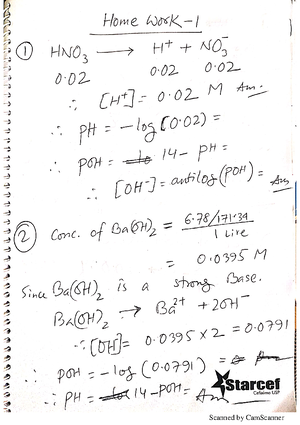 Home Work-1
① HNO₃ ⟶ H⁺ + NO₃⁻
0.02 0.02 0.02
∴ [H⁺] = 0.02 M Ans.
∴ pH = -log(0.02) =
∴ pOH = 14 - pH =
∴ [OH⁻] = antilog(pOH) = Ans
② Conc. of Ba(OH)₂ = 6.78/171.34 / 1 Litre
= 0.0395 M
Since Ba(OH)₂ is a strong Base.
Ba(OH)₂ ⟶ Ba²⁺ + 2OH⁻
∴ [OH] = 0.0395 × 2 = 0.0791
∴ pOH = -log(0.0791) =
∴ pH = 14 - pOH = Ans
Starcef
Cefixime USP
Scanned by CamScanner